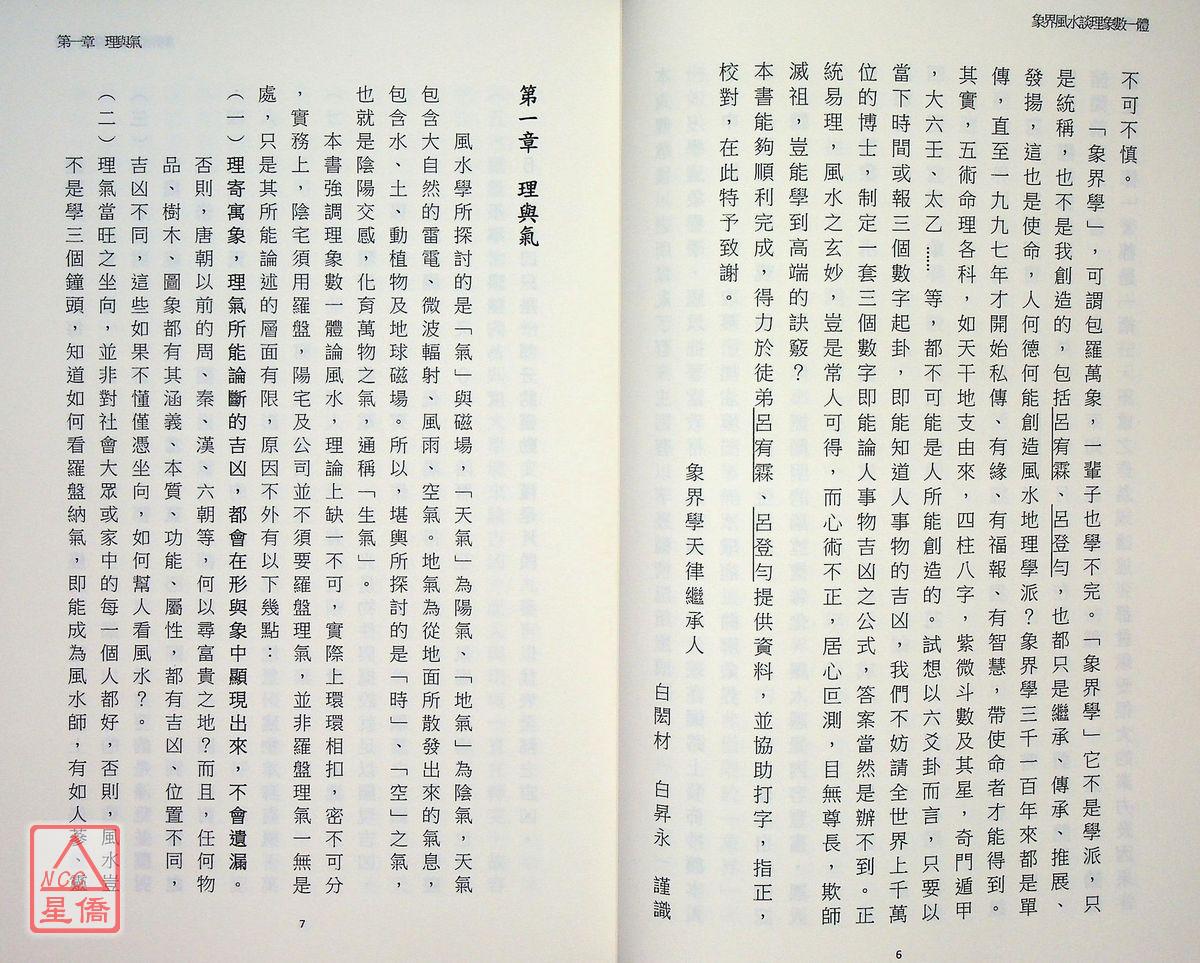 象界風水談理象數一體
不可不慎。
「象界學」，可謂包羅萬象，輩子也學不完。「象界學」它不是學派，只
是統稱，也不是我創造的，包括呂宥霖、呂登勻，也都只是繼承、傳承、推展、
發揚，這也是使命，人何德何能創造風水地理學派？象界學三千一百年來都是單
傳，直至一九九七年才開始私傳、有緣、有福報、有智慧，帶使命者才能得到。
其實，五術命理各科，如天干地支由來，四柱八字，紫微斗數及其星，奇門遁甲
，大六壬、太乙……等，都不可能是人所能創造的。試想以六爻卦而言，只要以
當下時間或報三個數字起卦，即能知道人事物的吉凶，我們不妨請全世界上千萬
位的博士，制定一套三個數字即能論人事物吉凶之公式，答案當然是辦不到。正
統易理，風水之玄妙，豈是常人可得，而心術不正，居心叵測，目無尊長，欺師
滅祖，豈能學到高端的訣竅？
本書能夠順利完成，得力於徒弟呂宥霖、呂登勻提供資料，並協助打字，指正，
校對，在此特予致謝。
象界學天律繼承人　白閎材　白昇永　謹識
6
第一章　理與氣
第一章 理與氣
風水學所探討的是「氣」與磁場，「天氣」為陽氣，「地氣」為陰氣，天氣
包含大自然的雷電、微波輻射、風雨、空氣。地氣為從地面所散發出來的氣息，
包含水、土、動植物及地球磁場。所以，堪輿所探討的是「時」、「空」之氣，
也就是陰陽交感，化育萬物之氣，通稱「生氣」。
本書強調理象數一體論風水，理論上缺一不可，實際上環環相扣，密不可分
，實務上，陰宅須用羅盤，陽宅及公司並不須要羅盤理氣，並非羅盤理氣一無是
處，只是其所能論述的層面有限，原因不外有以下幾點：
（一）理寄寓象，理氣所能論斷的吉凶，都會在形與象中顯現出來，不會遺漏。
否則，唐朝以前的周、秦、漢、六朝等，何以尋富貴之地？而且，任何物
品、樹木、圖象都有其涵義、本質、功能、屬性，都有吉凶、位置不同，
吉凶不同，這些如果不懂僅憑坐向，如何幫人看風水？。
（二）理氣當旺之坐向，並非對社會大眾或家中的每一個人都好，否則，風水豈
不是學三個鐘頭，知道如何看羅盤納氣，即能成為風水師，有如人蔘、靈
7
NCC
星僑